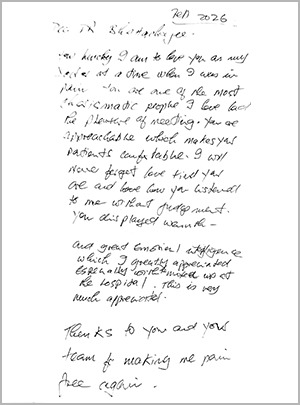 Feb 2026
Dear Dr Bhattacharjee.
How lucky I am to have you as my
doctor at a time when I was in
pain. You are one of the most
charismatic people I have had
the pleasure of meeting. You are
approachable which makes your
patients comfortable. I will
never forget how kind you
are and how you listened
to me without judgement.
You displayed warmth –
and great emotional intelligence
which I greatly appreciated
especially
the hospital. This is very
much appreciated.
Thanks to you and your
team for making me pain
free again.